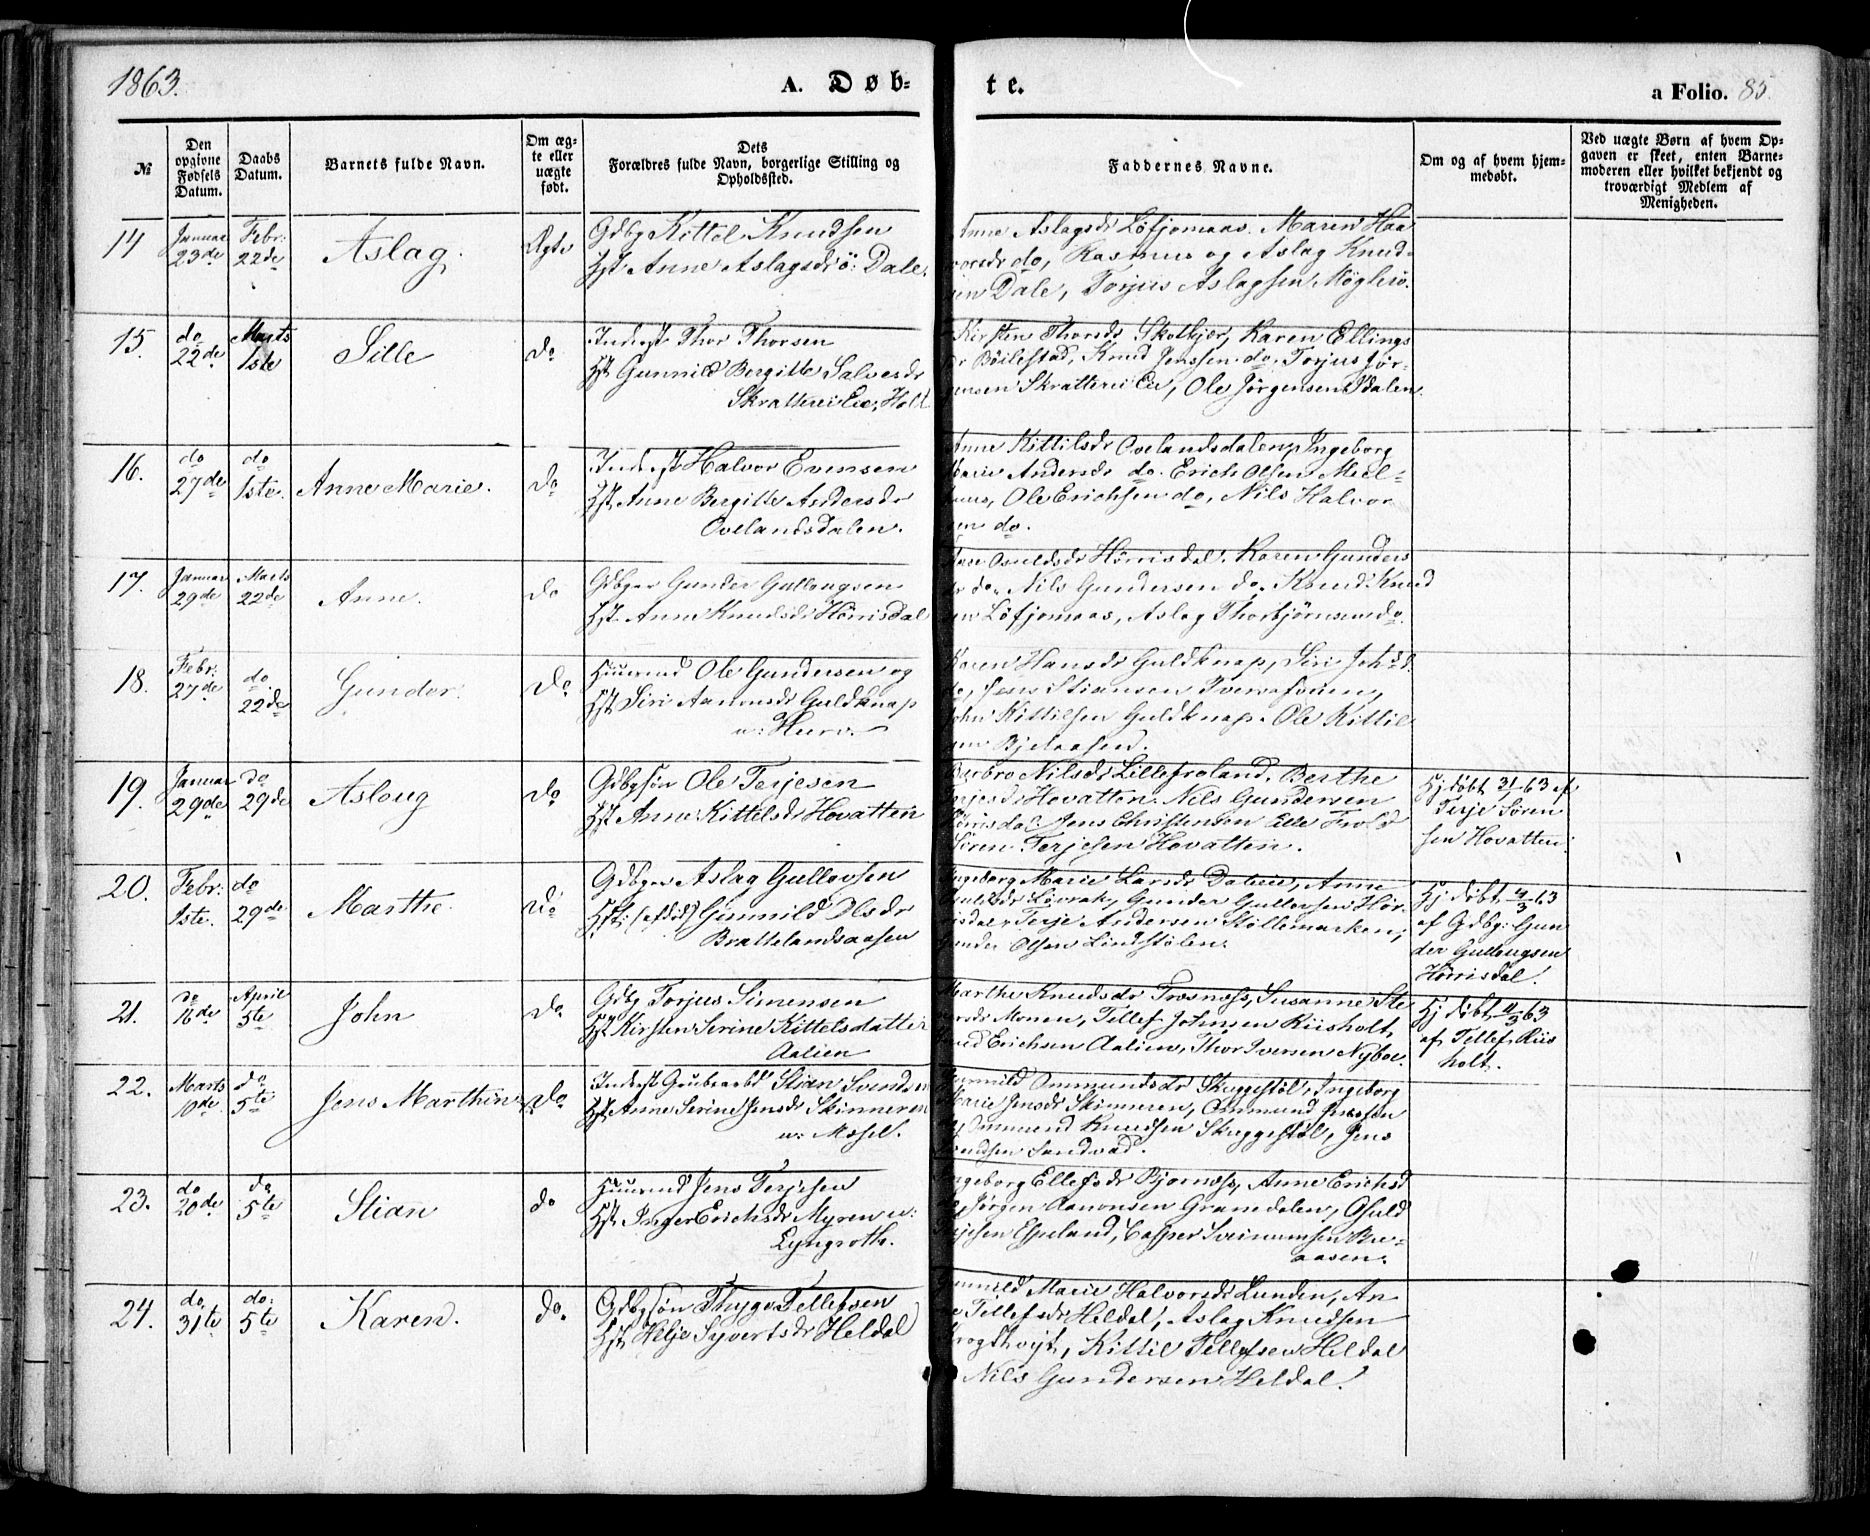 1863.
A. Døb-
te.
a Folio. 85.
№
Den opgivne Fødsels Datum.
Daabs Datum.
Barnets fulde Navn.
Om ægte eller uægte født.
Dets
Forældres fulde Navn, borgerlige Stilling og
Opholdssted.
Faddernes Navne.
Om og af hvem hjem-
medøbt.
Ved uægte Børn af hvem Op-
gaven er skeet, enten Barne-
moderen eller hvilket bekjendt og
troværdigt Medlem af
Menigheden.
14 Januar 23de Febr: 22de Aslag. Ægte
Gdbg Kittel Knudsen
Hst. Anne Aslagsdr ö: Dale.
Anne Aslagsdr Löfjomaas. Maren Haa
vorsdr do, Rasmus og Aslag Knud-
sen Dale, Torjus Aslagsen Möglesö.
15. do 22de Marts 1ste Sille do
Inderst Thor Thorsen
Hst Gunnild Bergitte Salvesdr
Skratterei Eie, Holt
Kirsten Thorsdr Skotkjær, Karen Ellings
dr Böilestad, Knud Jenssen do. Torjus Jör-
gensen Skratterei Eie, Ole Jörgensen Dalen.
16. do 27de do 1ste. Anne Marie. do
Inderst Halvor Evensen
Hst Anne Bergitte Andersdr
Ovelandsdalen.
Anne Kittilsdr Ovelandsdalen, Ingeborg
Marie Andersdr do. Erich Olsen Miel-
, Ole Erichsen do, Nils Halvor
sen do.
17. Januar 29de Marts 22de Anne. do
Gdbger Gunder Gullougsen
Hst. Anne Knudsdr Hörrisdal
Aase Osuldsdr Hörrisdal. Karen Gunders
dr do. Nils Gundersen do. Knud Knud
sen Löfjomaas, Aslag Thorbjörnsen do.
18. Febr: 27de do 22de Gunder. do
Huusmd Ole Gundersen og
Hst Siri Aanonsdr Guldknap
u: Hurv.
Karen Hansdr Guldknap, Siri Johsd.
do, Jens Stiansen Tveraasen,
John Kittilsen Guldknap. Ole Kittil
sen Bjelaasen.
19. Januar 29de do 29de Asloug do
Gdbgsön Ole Terjesen
Hst Anne Kittelsdr Hovatten
Barbro Nilsdr Lillefroland. Berthe
Terjesdr Hovatten. Nils Gundersen
Hörrisdal. Jens Christenson Lille Frold
Sören Terjesen Hovatten.
Hj döbt 31/1 63 af
Terje Sören
sen Hovatten
20. Febr: 1ste. do 29de Marthe. do
Gdbger Aslag Gullovsen
Hst: (afdöd) Gunnild Olsdr
Brattelandsaasen
Ingeborg Marie Larsdr Daleie, Anne
Lövrak, Gunder Gullovsen Hör-
risdal, Terje Andersen Stöllemarken,
Gunder Olsen Lindstölen.
Hj döbt 4/3 63
af Gdbg: Gun
der Gullougsen
Hörrisdal.
21. do 16de April 5te John do
Gdbg Torjus Simensen
Hst Kirsten Serine Kittelsdatter
Aalien
Marthe Knudsdr Trosnæss, Susanne Ste
Monen, Tellef Johnsen Riisholt,
Knud Erichsen Aalien, Thor Iversen Nyboe.
Hj döbt 11/3 63
af Tellef Riis
holt.
22. Marts 10de do 5te Jens Marthin do
Inderst Grubearbd Stian Svendsen
Hst Anne Serine Jensdr Skinneren
u: Mosfel.
Gunnild Ommundsdr Skyggestöl, Ingeborg
Marie Jensdr Skinneren, Ommund Jenssen
og Ommund Knudsen Skyggestöl, Jens
Sandvad.
23. do 20de do 5te Stian do
Huusmd Jens Terjesen
Hst. Inger Erichsdr Myren u:
Lyngroth.
Ingeborg Ellefsdr Bjornæss, Anne Erichsd
do, Jörgen Aanonsen Gramdalen, Osuld
Terjesen Espeland, Casper Sveinumsen Bu-
aasen.
24. do 31te do: 5te Karen. do
Gdbgsön Thyge Tellefsen
Hst Helje Syvertsdr Heldal
Gunnild Marie Halvorsdr Lunden, An
ne Tellefsdr Heldal, Aslag Knudsen
Krogthvejt, Kittil Tellefsen Heldal
Nils Gundersen Heldal.